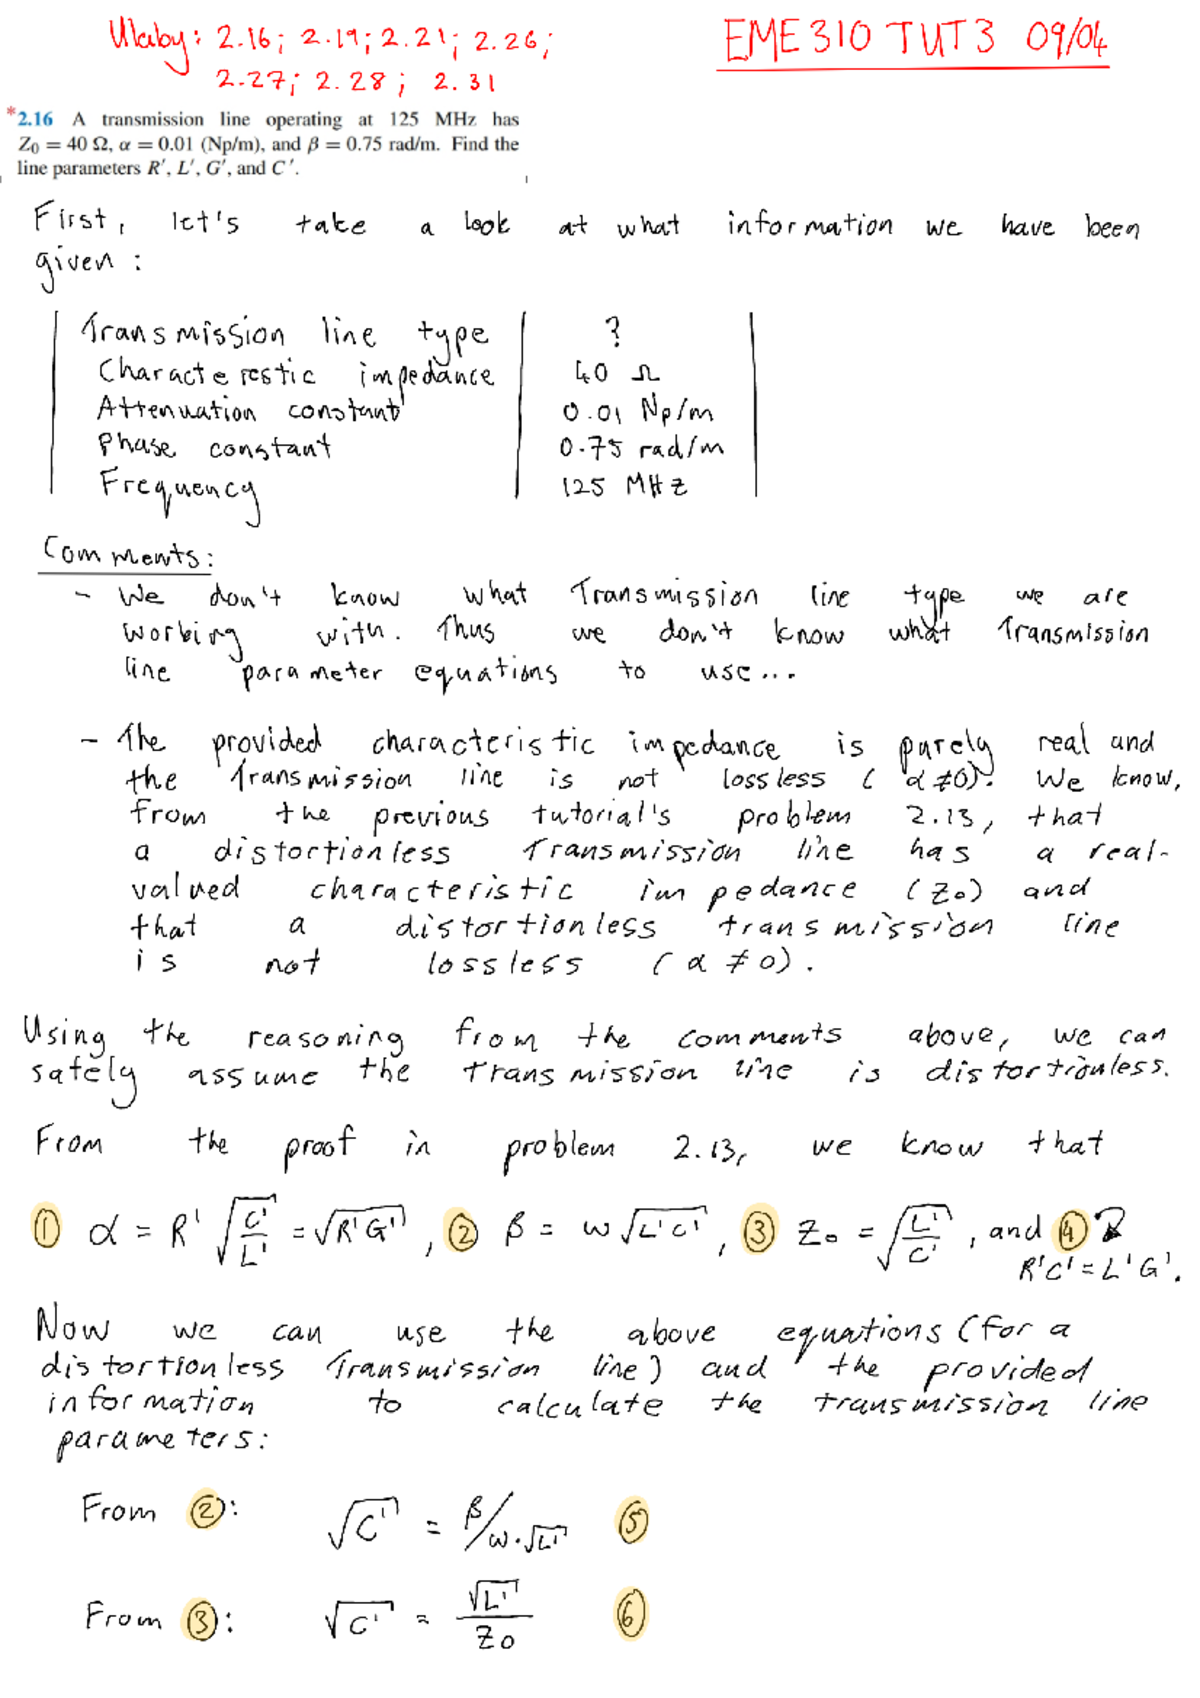 Ulaby: 2.16; 2.19; 2.21; 2.26;
2.27; 2.28; 2.31
EME 310 TUT 3 09/04
*2.16 A transmission line operating at 125 MHz has
Z₀ = 40 Ω, α = 0.01 (Np/m), and β = 0.75 rad/m. Find the
line parameters R′, L′, G′, and C′.
First, let's take a look at what information we have been
given:
Transmission line type ?
Characterestic impedance 40 Ω
Attenuation constant 0.01 Np/m
Phase constant 0.75 rad/m
Frequency 125 MHz
Comments:
- We don't know what Transmission line type we are
working with. Thus we don't know what Transmission
line parameter equations to use...
- The provided characteristic impedance is purely real and
the Transmission line is not lossless (α ≠ 0). We know,
from the previous tutorial's problem 2.13, that
a distortionless Transmission line has a real-
valued characteristic impedance (Z₀) and
that a distortionless transmission line
is not lossless (α ≠ 0).
Using the reasoning from the comments above, we can
safely assume the transmission line is distortionless.
From the proof in problem 2.13, we know that
① α = R' √(C'/L') = √(R'G'), ② β = ω√(L'C'), ③ Z₀ = √(L'/C'), and ④
R'C' = L'G'.
Now we can use the above equations (for a
distortionless Transmission line) and the provided
information to calculate the transmission line
parameters:
From ②: √C' = β/ω·√L' ⑤
From ③: √C' = √L'/Z₀ ⑥